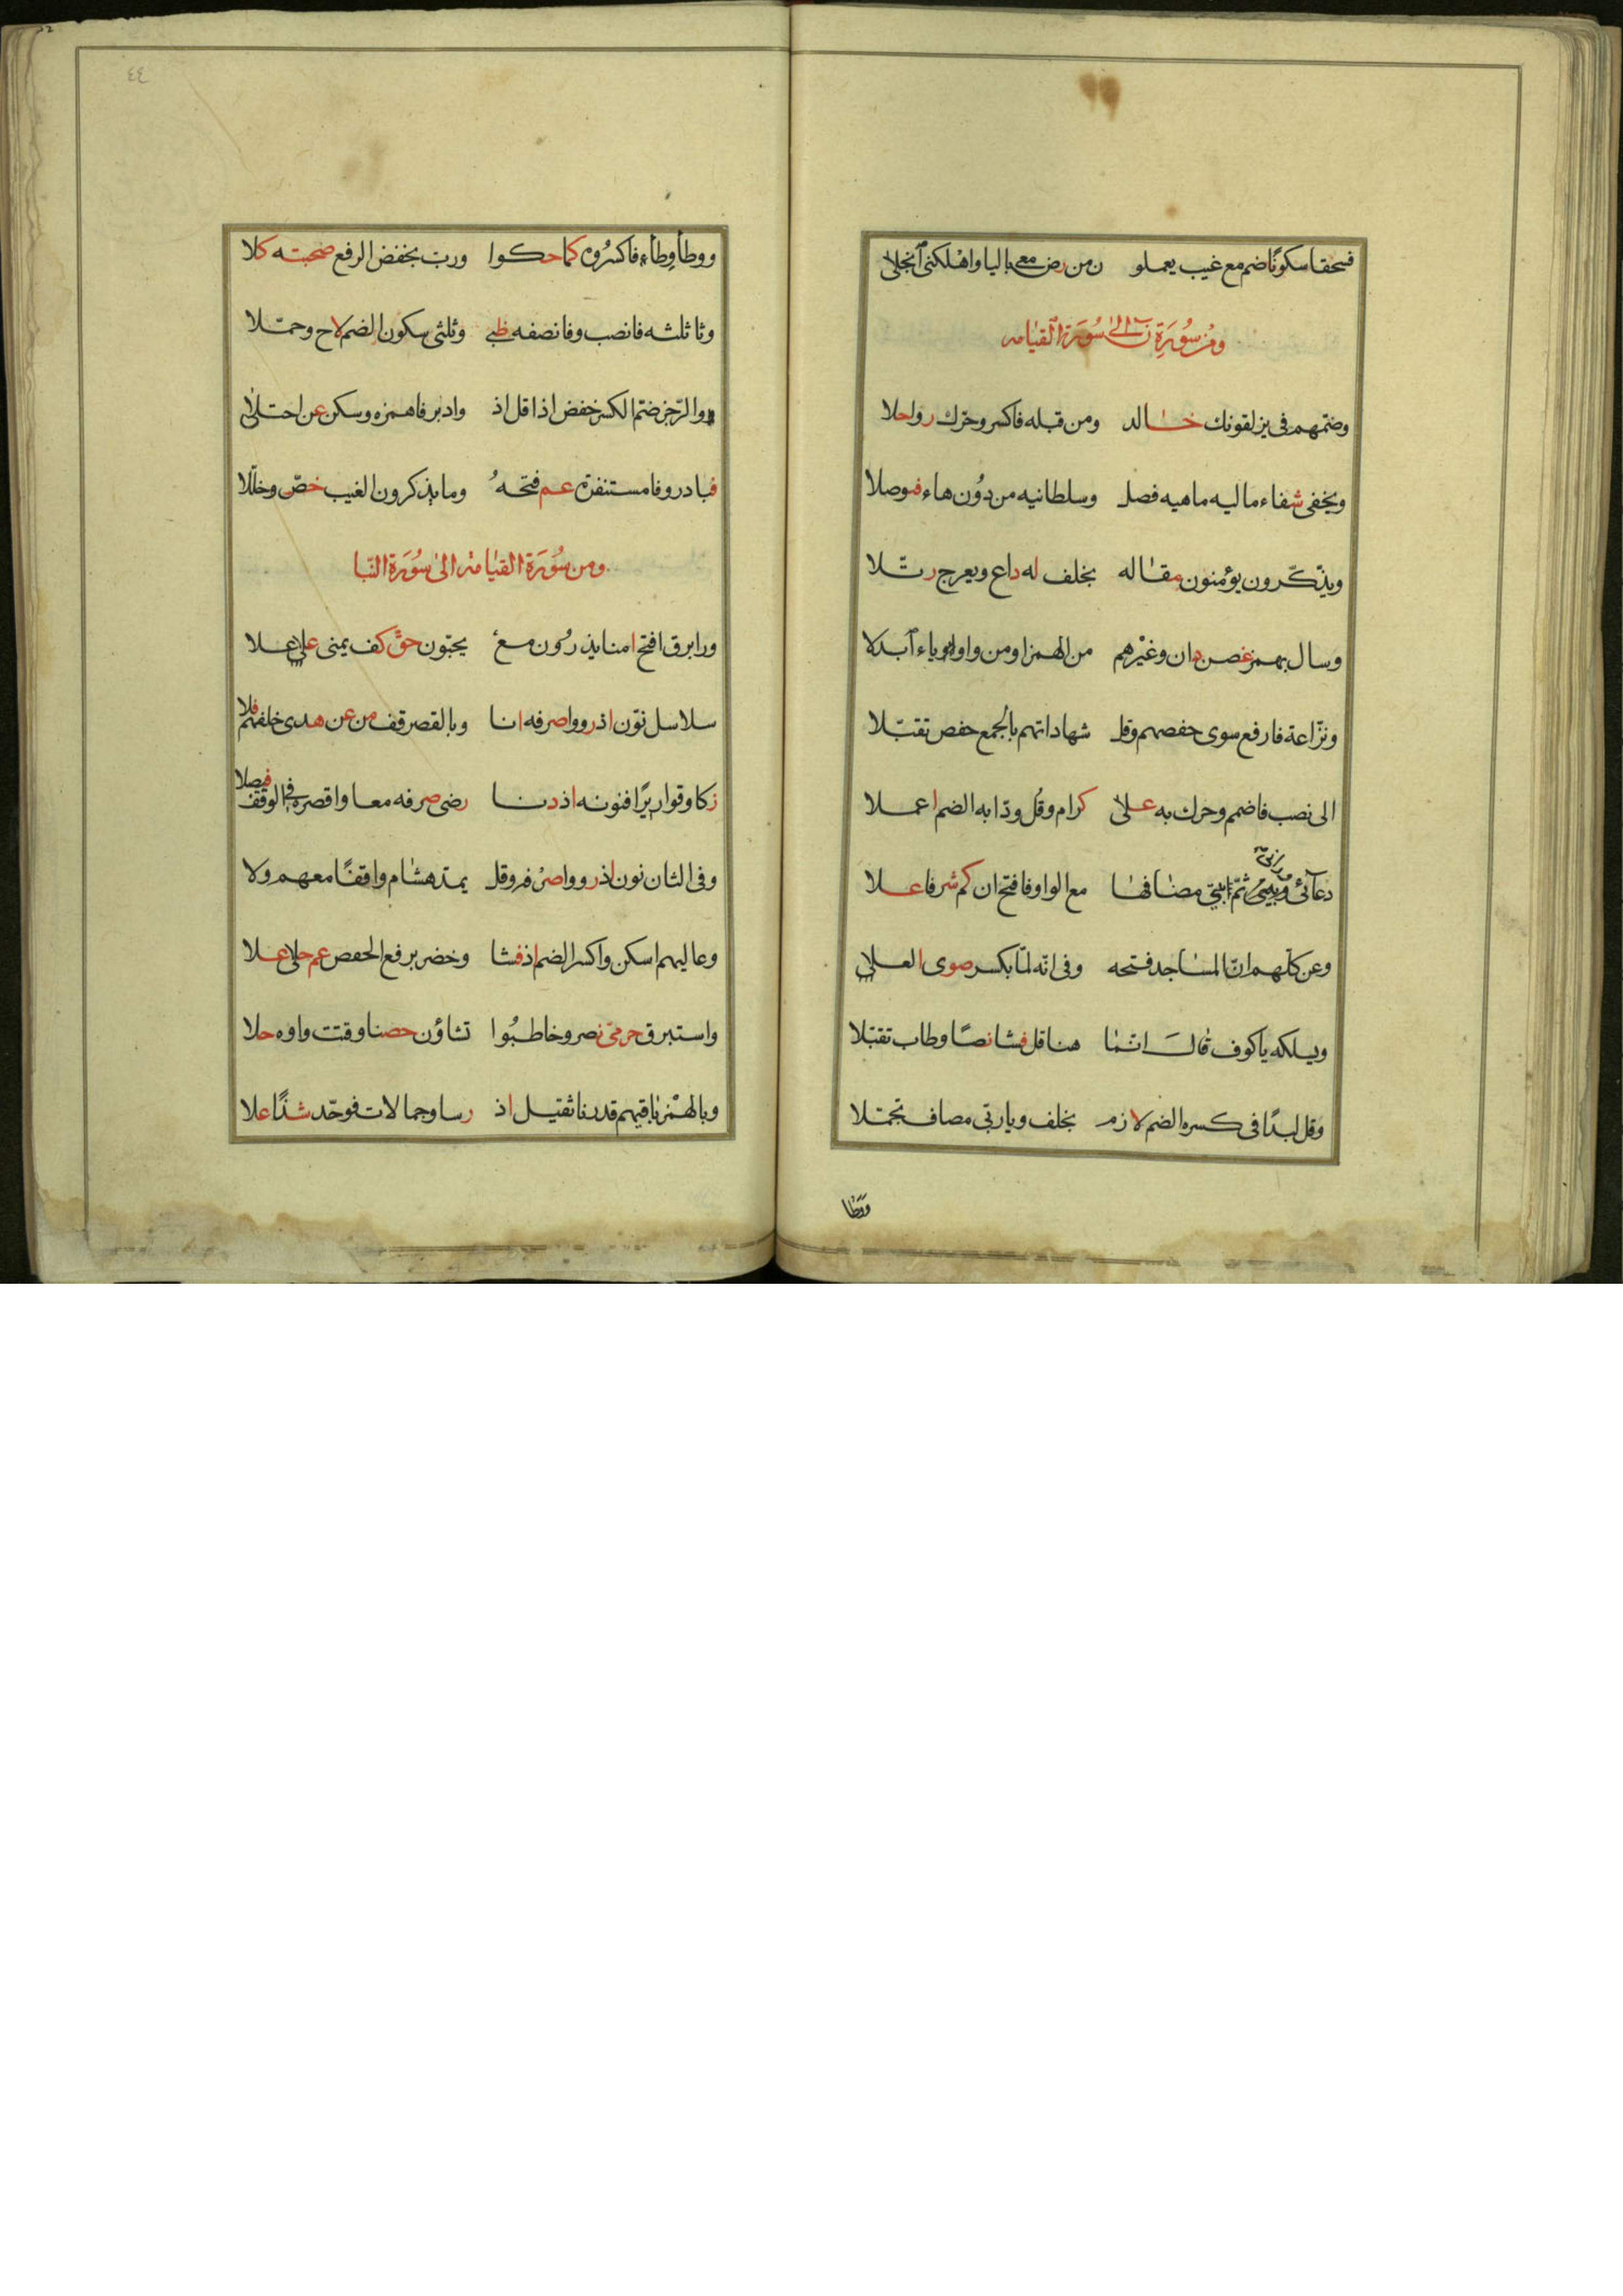 فسحقا سكونًا ضم مع غيب يعملو ن من رض معى باليا واهلكنى آنجلا
ومن سُورَة ن الى سُورَة القيامه
وضمّهم فى يزلقونك خالد ومن قبله فاكسر وحرّك روا حلا
ويخفى شفاء ماليه ماهيه فصل وسلطانيه من دُون هاء فوصلا
ويذّكّرون يؤمنون مقاله بخلف له داع ويعرج رتّلا
وسال بهمز غصن دان وغيرهم من الهمز او من واو او ياء ابدلا
ونزّاعة فارفع سوى حفصهم وقل شهاداتهم بالجمع حفص تقبّلا
الى نصب فاضمم وحرك به على كرام وقُل ودّا به الضم اعملا
دعآئى وانّى ثمّ بيتى مضافها مع الواو فافتح ان كم شرفا علا
وعن كلّهم انّ المساجد فتحه وفى انّه لمّا بكسر صوى العلا
ويسلكه ياكوف قال انّما هنا قل فشا نصًا وطاب تقبّلا
وقل لبدًا فى كسره الضم لازم بخلف ويا ربّى مضاف تجمّلا
ووطا
٤٤
ووطأ وِطاء فاكسرُوه كما حكوا وربّ بخفض الرفع صحبته كلا
وثا ثلثه فانصب وفا نصفه ظبى وثلثى سكون الضم لاح وحمّلا
والرّجز ضمّ الكسر خفض اذا قل اذ وادبر فاهمزه وسكن عن اجتلى
فبادر وفا مستنفره عم فتحهُ وما يذكرون الغيب خصّ وخلّلا
ومن سُورَة القيامة الى سُورَة النّبا
ورا برق افتح امنا يذرُون مع يحبّون حقّ كف يمنى على علا
سلاسل نوّن اذ رووا صرفه انا وبالقصر قف من عن هدى خلفهم فلا
زكا وقواريرًا فنونه اذ دنا رضى صرفه معا واقصره فى الوقف فيصلا
وفى الثان نون اذ رووا صرفه وقل يمد هشام واقفًا معهم ولا
وعاليهم اسكن واكسر الضم اذ فشا وخضر برفع الحفص عم حلى علا
واستبرق حرمىّ نصر وخاطبُوا تشاؤن حصنا وقتت واوه حلا
وبالهمز باقيهم قدرنا ثقيل اذ رسا وجمالات فوحّد شذًا علا